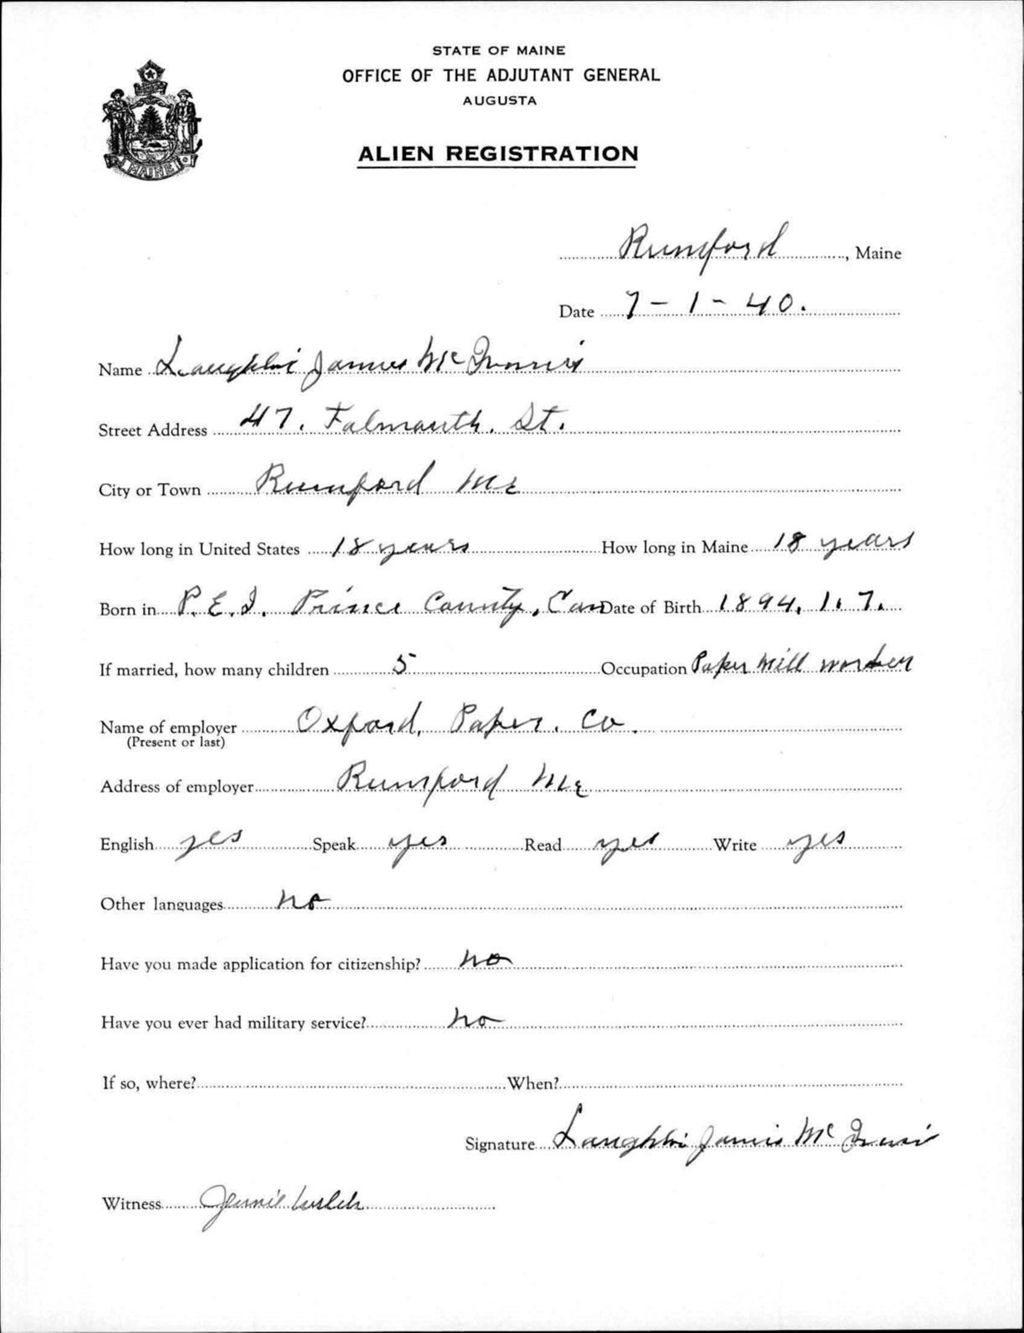 STATE OF MAINE
OFFICE OF THE ADJUTANT GENERAL
AUGUSTA
ALIEN REGISTRATION
MAINE
Rumford, Maine
Date 7-1-40.
Name James Mc
Street Address 47. Falmouth. St.
City or Town Rumford Me
How long in United States 18 years How long in Maine 18 years
Born in P.E.I. Prince County, Can Date of Birth 1894. 1. 7.
If married, how many children 5 Occupation Paper Mill worker
Name of employer Oxford, Paper. Co.
(Present or last)
Address of employer Rumford Me
English yes Speak yes Read yes Write yes
Other languages no
Have you made application for citizenship? no
Have you ever had military service? no
If so, where? When?
Signature James Mc
Witness Jennie Welch